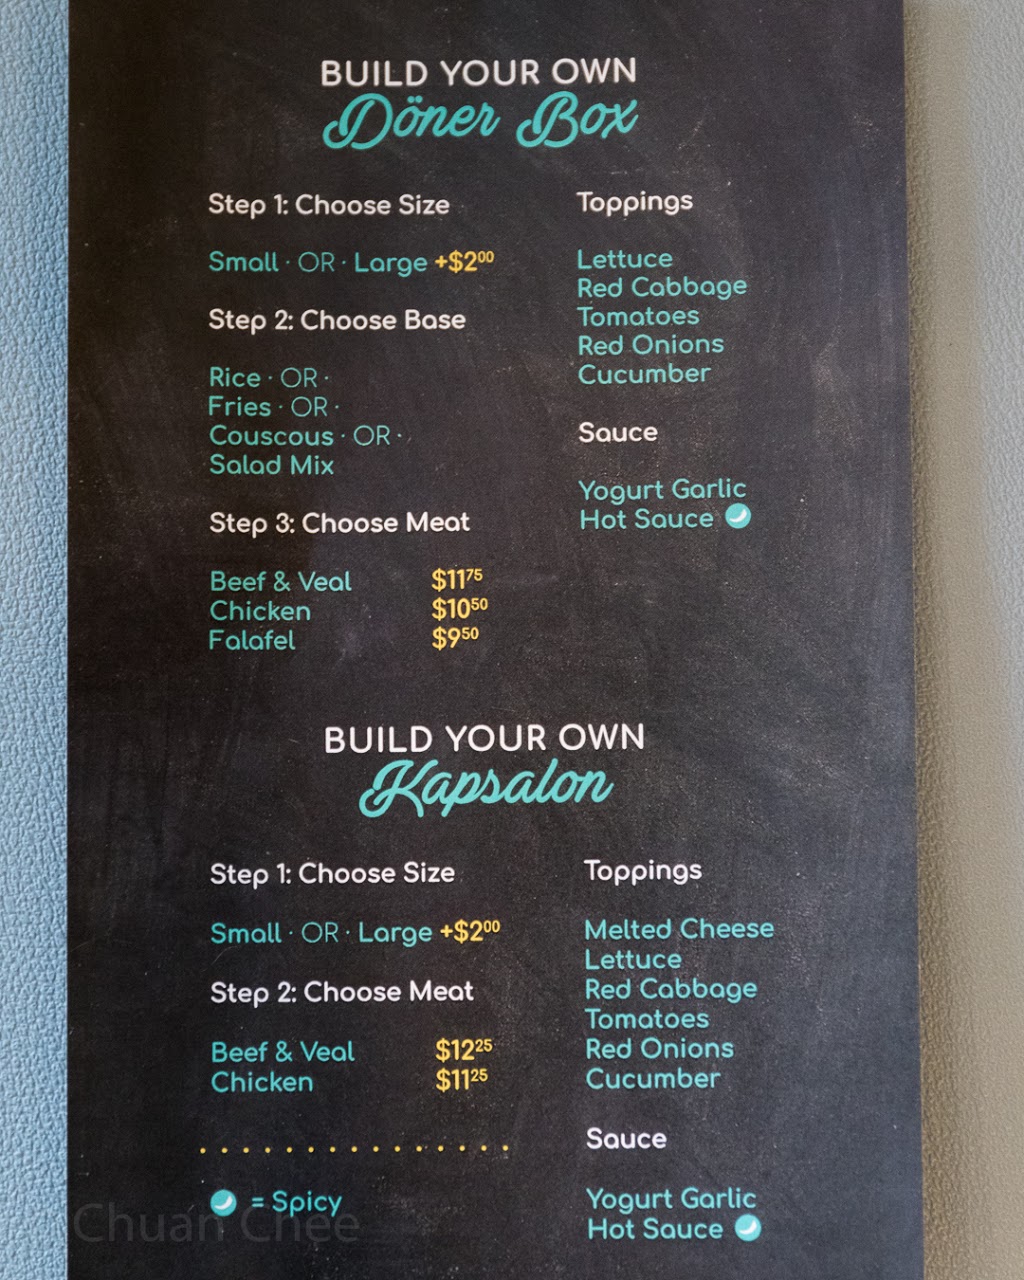 BUILD YOUR OWN
Döner Box
Step 1: Choose Size
Small · OR · Large +$2⁰⁰
Step 2: Choose Base
Rice · OR ·
Fries · OR ·
Couscous · OR ·
Salad Mix
Step 3: Choose Meat
Beef & Veal $11⁷⁵
Chicken $10⁵⁰
Falafel $9⁵⁰
Toppings
Lettuce
Red Cabbage
Tomatoes
Red Onions
Cucumber
Sauce
Yogurt Garlic
Hot Sauce
BUILD YOUR OWN
Kapsalon
Step 1: Choose Size
Small · OR · Large +$2⁰⁰
Step 2: Choose Meat
Beef & Veal $12²⁵
Chicken $11²⁵
= Spicy
Toppings
Melted Cheese
Lettuce
Red Cabbage
Tomatoes
Red Onions
Cucumber
Sauce
Yogurt Garlic
Hot Sauce
Chuan Chee